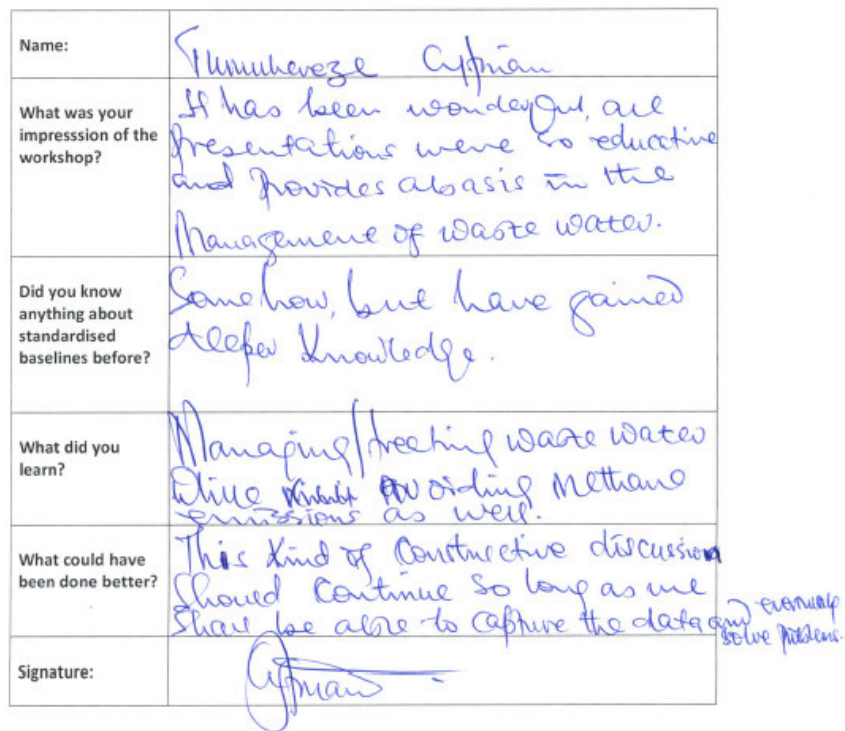 Name: Tumuhereze Cyprian
What was your impresssion of the workshop?
It has been wonderful, all
presentations were so educative
and provides a basis in the
Management of waste water.
Did you know anything about standardised baselines before?
Somehow, but have gained
deeper knowledge.
What did you learn?
Managing/treating waste water
While avoiding Methane
emissions as well.
What could have been done better?
This kind of constructive discussion
should continue so long as we
shall be able to capture the data and
solve problems.
Signature: Cyprian